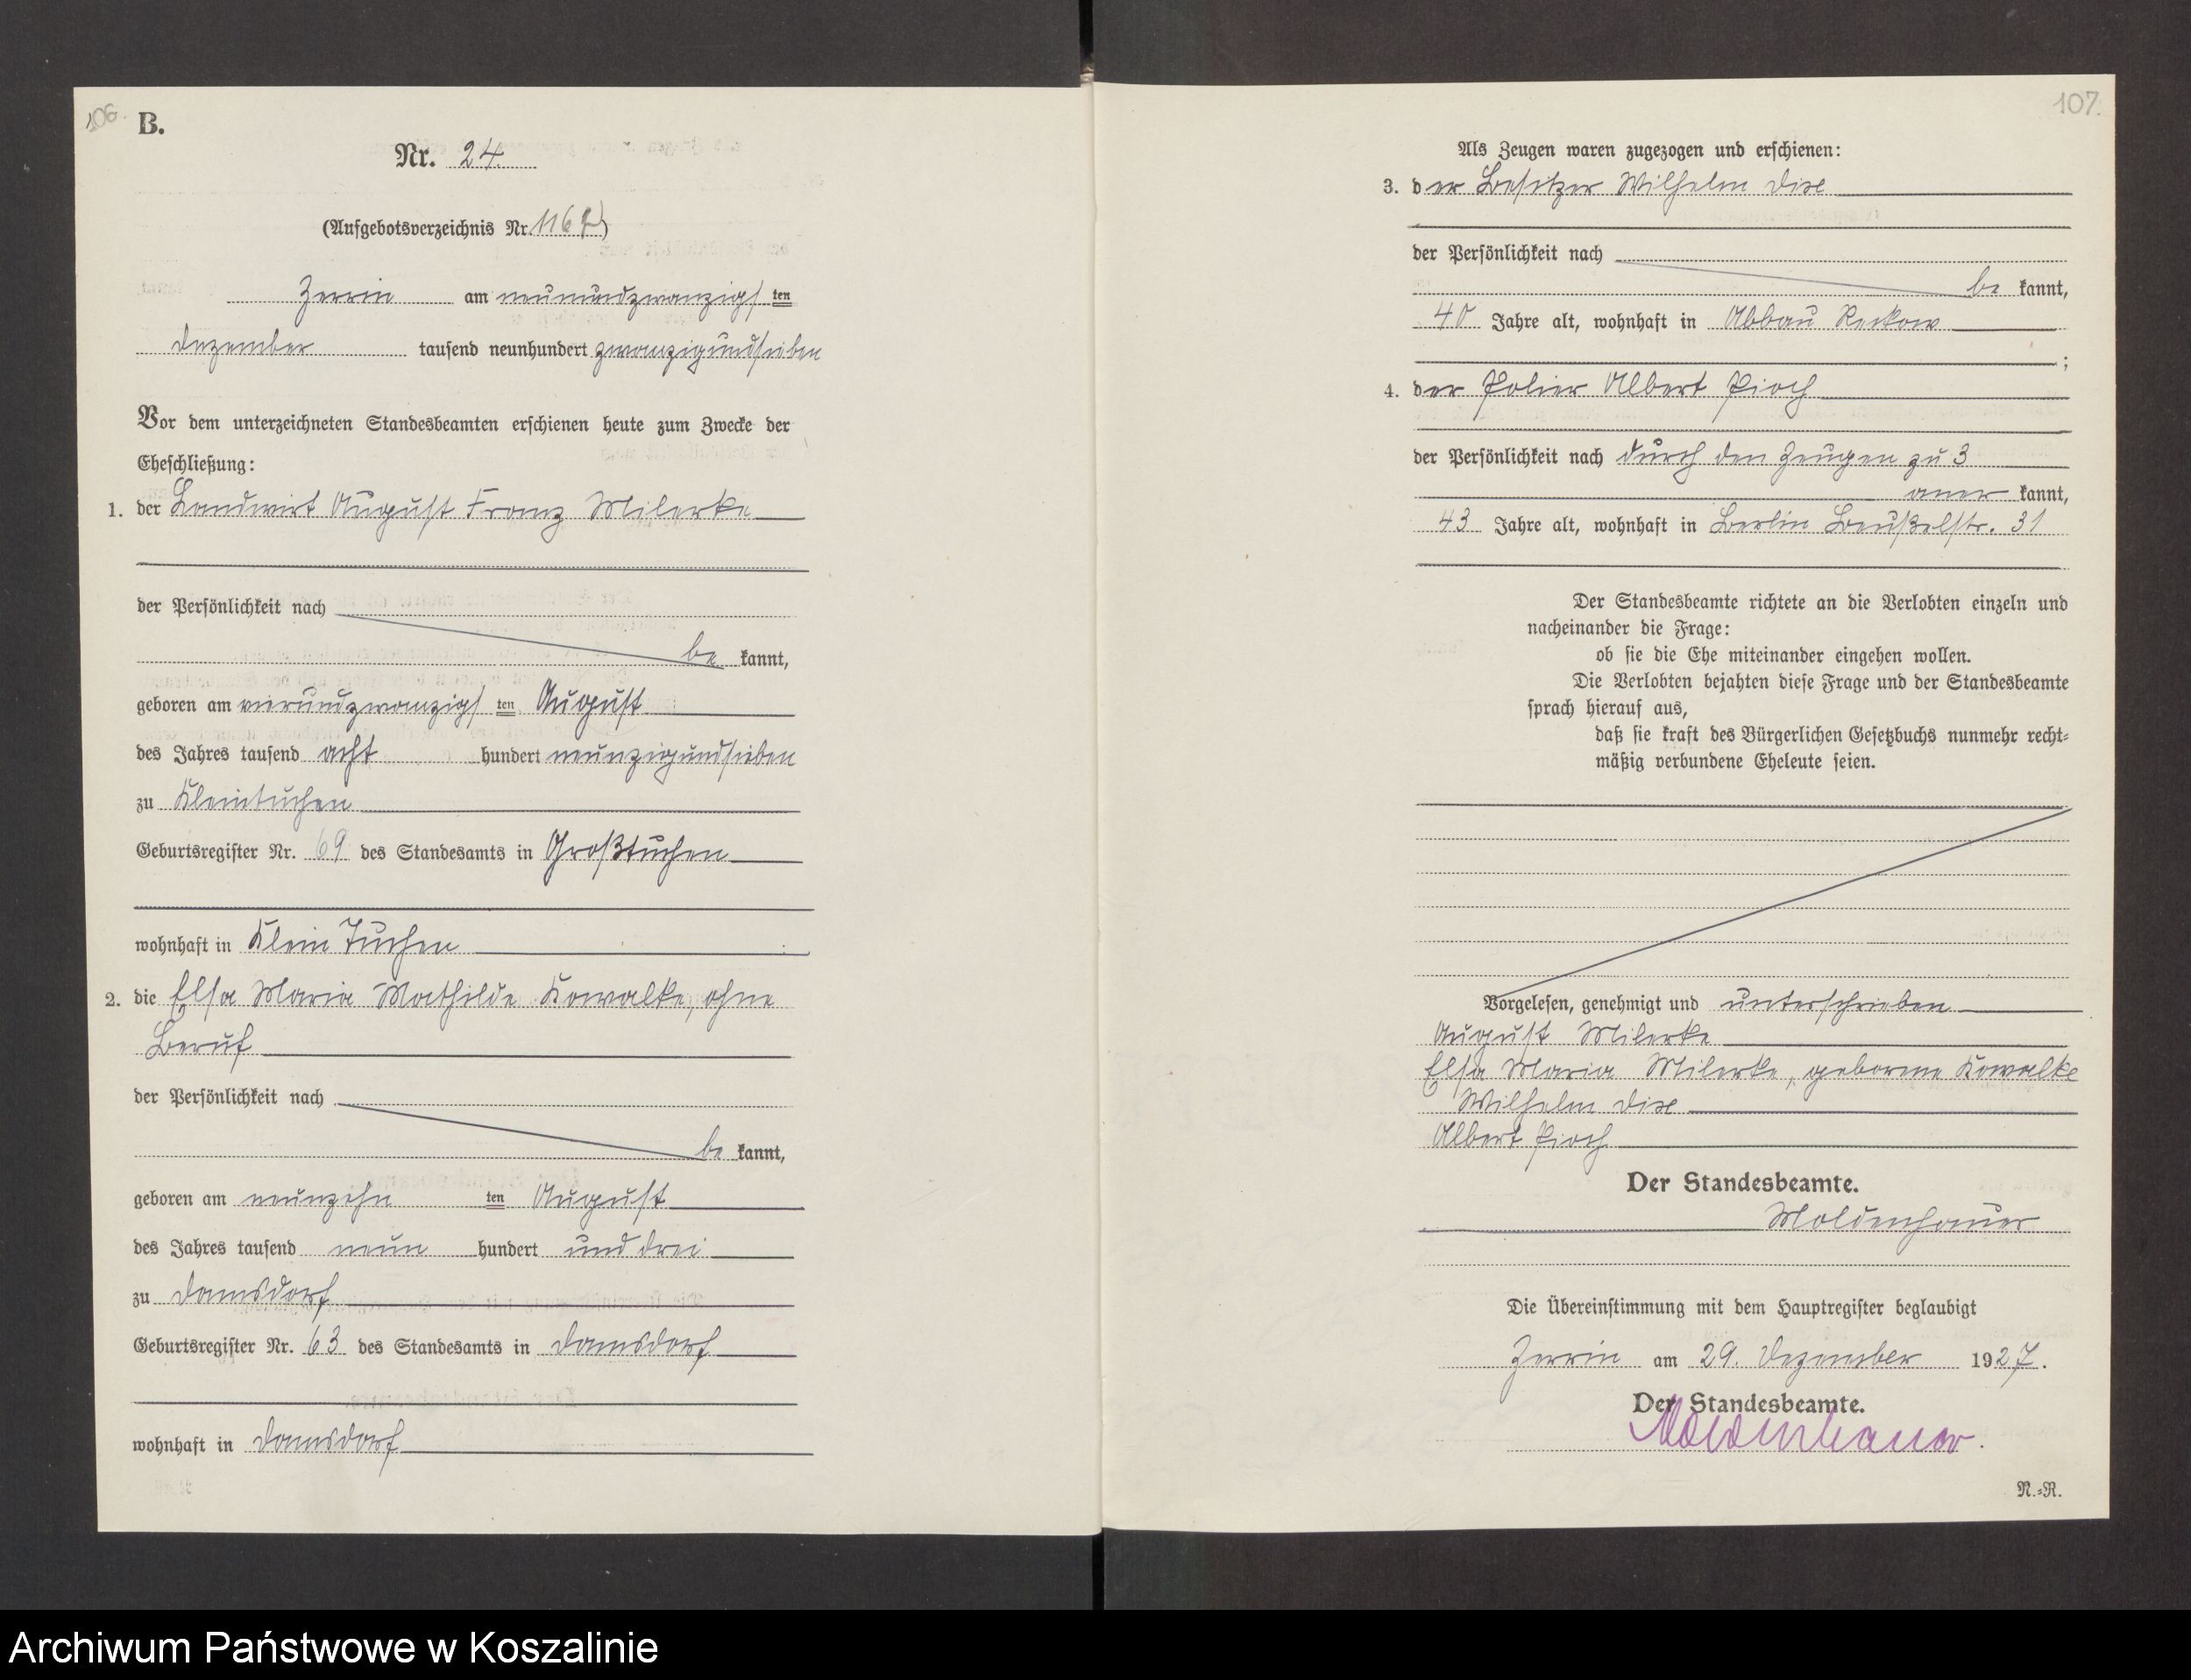 106.
B.
Nr. 24
(Aufgebotsverzeichnis Nr. 116)
Zerrin am neunundzwanzigsten
Dezember tausend neunhundert zwanzigundsieben
Vor dem unterzeichneten Standesbeamten erschienen heute zum Zwecke der
Eheschließung:
1. der Landwirt August Franz Milerke
der Persönlichkeit nach
be kannt,
geboren am vierundzwanzigsten August
des Jahres tausend acht hundert neunzigundsieben
zu Kleintuchen
Geburtsregister Nr. 69 des Standesamts in Großtuchen
wohnhaft in Klein Tuchen
2. die Elsa Maria Mathilde Kowalke, ohne
Beruf
der Persönlichkeit nach
be kannt,
geboren am neunzehn ten August
des Jahres tausend neun hundert und drei
zu Damsdorf
Geburtsregister Nr. 63 des Standesamts in Damsdorf
wohnhaft in Damsdorf
107.
Als Zeugen waren zugezogen und erschienen:
3. der Besitzer Wilhelm
der Persönlichkeit nach
be kannt,
40 Jahre alt, wohnhaft in Abbau Reckow
;
4. der Polier Albert Pioch
der Persönlichkeit nach durch den Zeugen zu 3
aner kannt,
43 Jahre alt, wohnhaft in Berlin Beußelstr. 31
Der Standesbeamte richtete an die Verlobten einzeln und
nacheinander die Frage:
ob sie die Ehe miteinander eingehen wollen.
Die Verlobten bejahten diese Frage und der Standesbeamte
sprach hierauf aus,
daß sie kraft des Bürgerlichen Gesetzbuchs nunmehr recht-
mäßig verbundene Eheleute seien.
Vorgelesen, genehmigt und unterschrieben
August Milerke
Elsa Maria Milerke, geborene Kowalke
Wilhelm
Albert Pioch
Der Standesbeamte.
Moldenhauer
Die Übereinstimmung mit dem Hauptregister beglaubigt
Zerrin am 29. Dezember 1927.
Der Standesbeamte.
Moldenhauer.
N.-R.
Archiwum Państwowe w Koszalinie